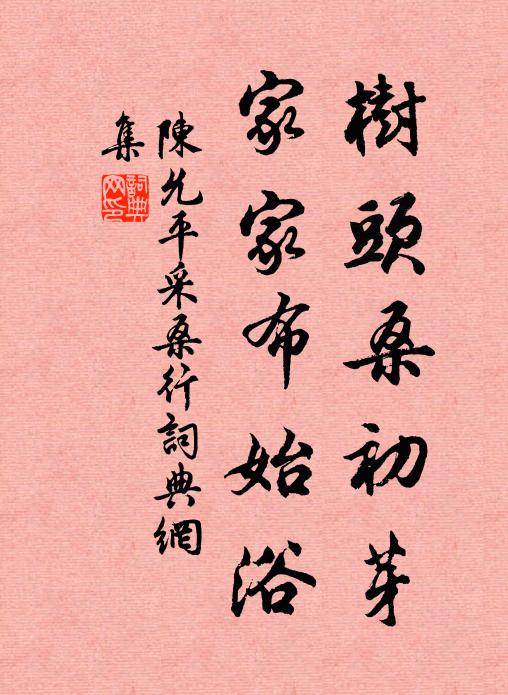 樹頭桑初芽
家家布始浴
陳允平采桑行詞典網
集
詞典网印